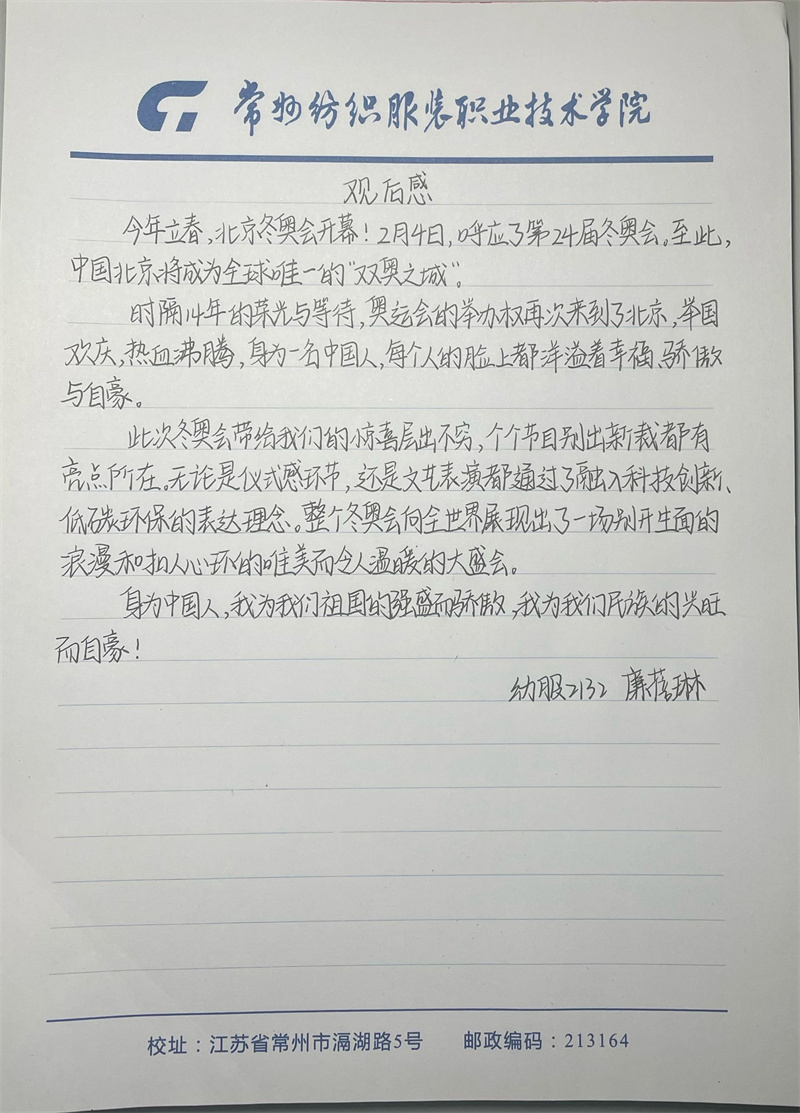 常州纺织服装职业技术学院
观后感
今年立春，北京冬奥会开幕！2月4日，呼应了第24届冬奥会。至此，
中国北京将成为全球唯一的“双奥之城”。
时隔14年的荣光与等待，奥运会的举办权再次来到了北京，举国
欢庆，热血沸腾，身为一名中国人，每个人的脸上都洋溢着幸福、骄傲
与自豪。
此次冬奥会带给我们的惊喜层出不穷，个个节目别出新裁都有
亮点所在。无论是仪式感环节，还是文艺表演都通过了融入科技创新、
低碳环保的表达理念。整个冬奥会向全世界展现出了一场别开生面的
浪漫和扣人心环的唯美而令人温暖的大盛会。
身为中国人，我为我们祖国的强盛而骄傲，我为我们民族的兴旺
而自豪！
幼服2132 廉 琳
校址：江苏省常州市滆湖路5号 邮政编码：213164